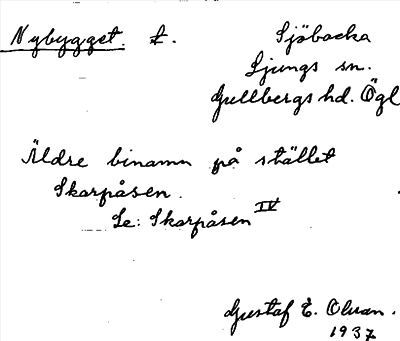 Nybygget. t.
Sjöbacka
Ljungs sn.
Gullbergs hd. Ögl
Äldre binamn på stället
Skarpåsen.
Se: Skarpåsen IV
Gustaf E. Olsson.
1937